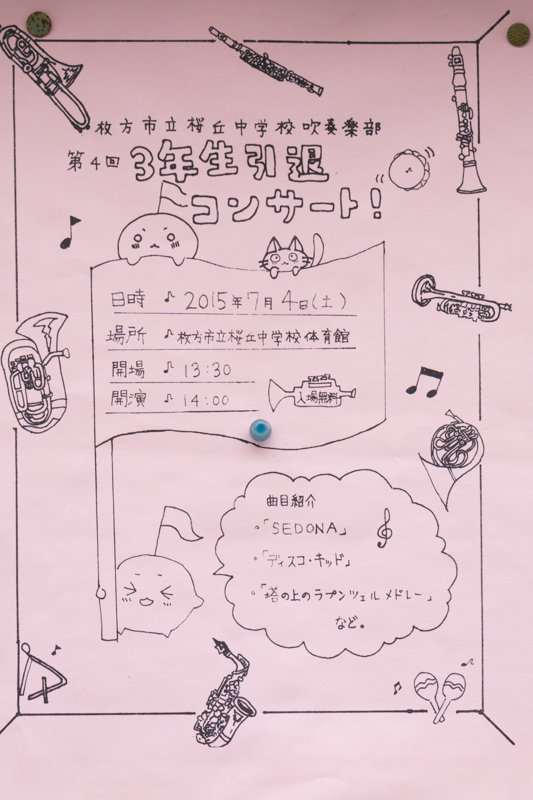 枚方市立桜丘中学校吹奏楽部
第4回 3年生引退
コンサート!
日時 ♪ 2015年7月4日(土)
場所 ♪ 枚方市立桜丘中学校体育館
開場 ♪ 13:30
開演 ♪ 14:00
入場無料
曲目紹介
。「SEDONA」
。「ディスコ・キッド」
。「塔の上のラプンツェルメドレー」
など。